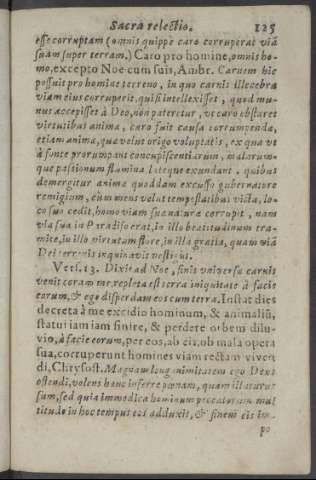 Sacra relectio. 125
esse corruptam (omnis quippe caro corruperat viã
suam super terram.) Caro pro homine, omnis ho-
mo, excepto Noe cum suis, Ambr. Carnem hic
possuit pro homine terreno, in quo carnis illecebra
viam eius corruperit, qui si intellexisset, quod mu-
nus accepisset à Deo, non pateretur, vt caro obstaret
virtutibus anima, caro fuit causa corrumpenda,
etiam anima, qua velut origo voluptatis, ex qua vt
à fonte prorumpant concupiscentiarum, malarum-
que passionum flumina, lateque exundant, quibus
demergitur anima quodam excusso gubernatore
remigium, cùm mens velut tempestatibus victa, lo-
co suo cedit, homo viam sua natura corrupit, nam
via sua in Paradiso erat, in illo beatitudinum tra-
mite, in illo virtutum flore, in illa gratia, quam viã
Dei terrenis inquinavit vestigiis.
Vers. 13. Dixit ad Noe, finis vniversæ carnis
venit coram me, repleta est terra iniquitate à facie
eorum, & ego disperdam eos cum terra. Instat dies
decreta à me excidio hominum, & animaliũ,
statui iam iam finire, & perdere orbem dilu-
vio, à facie eorum, per eos, ab eis, ob mala opera
sua, corruperunt homines viam rectam viven-
di, Chrysost. Magnam longanimitatem ego Deus
ostendi, volens hanc inferre pœnam, quam illaturus
sum, sed quia immodica hominum peccatorum mul
titudo in hoc tempus eos adduxit, & finem eis im-
po